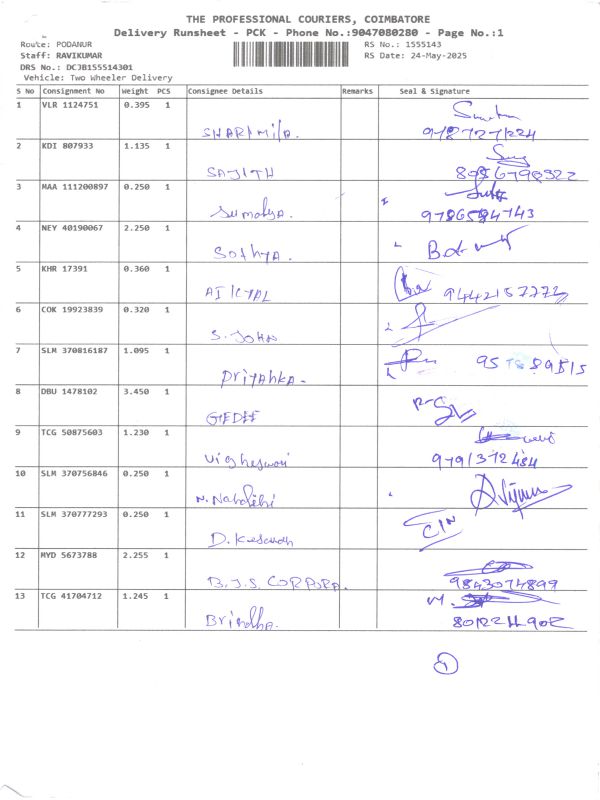 THE PROFESSIONAL COURIERS, COIMBATORE
Delivery Runsheet - PCK - Phone No.:9047080280 - Page No.:1
Route: PODANUR RS No.: 1555143
Staff: RAVIKUMAR RS Date: 24-May-2025
DRS No.: DCJB155514301
Vehicle: Two Wheeler Delivery
S No Consignment No Weight PCS Consignee Details Remarks Seal & Signature
1 VLR 1124751 0.395 1
SHARMILA.
2 KDI 807933 1.135 1
SAJITH
3 MAA 111200897 0.250 1
Sumathya. 9786584743
4 NEY 40190067 2.250 1
Sathya.
5 KHR 17391 0.360 1
9442157773
6 COK 19923839 0.320 1
S. JOHN
7 SLM 370816187 1.095 1
Priyanka.
8 DBU 1478102 3.450 1
GEDEE
9 TCG 50875603 1.230 1
Vigheswari 9791372484
10 SLM 370756846 0.250 1
11 SLM 370777293 0.250 1
12 MYD 5673788 2.255 1
B.J.S. CORPORA. 9843074899
13 TCG 41704712 1.245 1
Brindha.
1